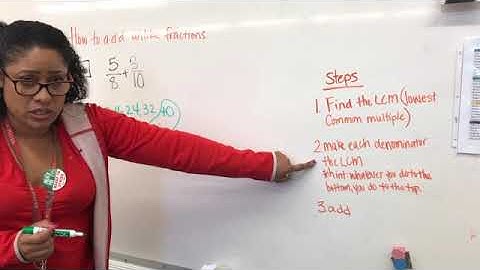 How to add unlike fractions
5/8 + 3/10
16,24,32,40
Steps
1. Find the LCM (lowest
common multiple)
2. make each denominator
the LCM
*hint: whatever you do to the
bottom, you do to the top.
3. add